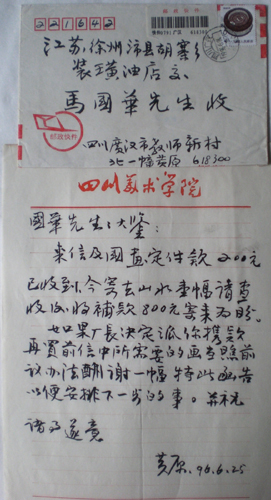 221642
江苏徐州沛县胡寨
装璜油店交
馬國华先生收
四川广汉市教师新村
北一幢黄原 618300
四川美术学院
國华先生大鉴：
来信及國画定件款200元
已收到，今寄去山水画幅请查
收，收补款800元寄来为盼。
如果厂长决定派你携款
再買前信中所需要的画当照前
议办法酬谢一幅 特此函告
以便安排下一步的事。
诸事遂意
黄原. 96.6.25